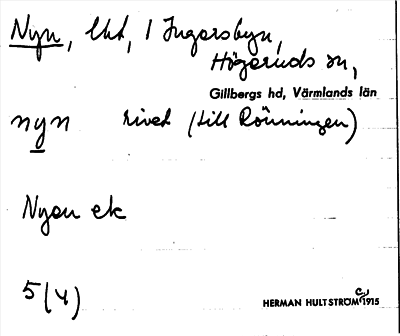 Nyn, lht, / Ingersbyn,
Högeruds sn,
Gillbergs hd, Värmlands län
nyn rivet (till Rönningen)
Nyen ek
5(4)
HERMAN HULTSTRÖM 1915